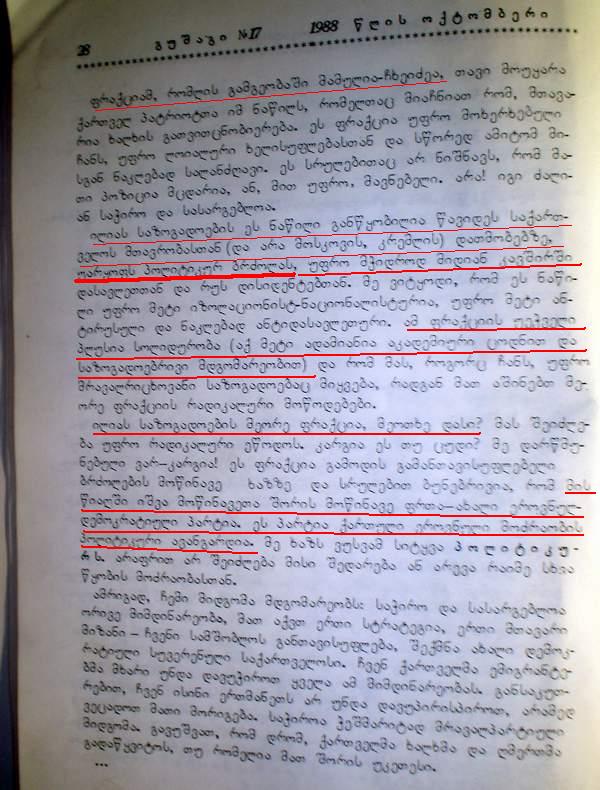 28 გუშაგი №17 1988 წლის ოქტომბერი
ფრაქციამ, რომლის გამგეობაში მამულია-ჩხეიძეა, თავი მოუყარა
ქართველ პატრიოტთა იმ ნაწილს, რომელთაც მიაჩნიათ რომ, მთავა-
რია ხალხის გათვითცნობიერება. ეს ფრაქცია უფრო მოხერხებული
ჩანს, უფრო ლოიალური ხელისუფლებასთან და სწორედ ამიტომ მი-
სგან ნაკლებად სალანძღავი. ეს სრულებითაც არ ნიშნავს, რომ მა-
თი პოზიცია მცდარია, ან, მით უფრო, მავნებელი. არა! იგი ძალი-
ან საჭირო და სასარგებლოა.
ილიას საზოგადოების ეს ნაწილი განწყობილია წავიდეს საქართ-
ველოს მთავრობასთან (და არა მოსკოვის, კრემლის) დათმობებზე,
უარყოფს პოლიტიკურ ბრძოლას, უფრო მჭიდროდ მიდიან კავშირში
დასავლეთთან და რუს დისიდენტებთან. მე ვიტყოდი, რომ ეს ნაწი-
ლი უფრო მეტი იზოლაციონისტ-ნაციონალისტურია, უფრო მეტი ან-
ტირუსული და ნაკლებად ანტიდასავლეური. ამ ფრაქციის უეჭველი
პლუსია სოლიდურობა (აქ მეტი ადამიანია აკადემიური ცოდნით და
საზოგადოებრივი მდგომარეობით) და რომ მას, როგორც ჩანს, უფრო
მრავალრიცხოვანი საზოგადოებაც მიყვება, რადგან მათ აშინებთ მე-
ორე ფრაქციის რადიკალური მოწოდებები.
ილიას საზოგადოების მეორე ფრაქცია, მეოთხე დასი? მას შეიძლე-
ბა უფრო რადიკალური ეწოდოს. კარგია ეს თუ ცუდი? მე დარწმუ-
ნებული ვარ–კარგია! ეს ფრაქცია გამოდის განმანთავისუფლებელი
ბრძოლების მოწინავე ხაზზე და სრულებით ბუნებრივია, რომ მის
წიაღში იშვა მოწინავეთა შორის მოწინავე ფრთა–ახალი ეროვნულ-
დემოკრატიული პარტია. ეს პარტია ქართული ეროვნული მოძრაობის
პოლიტიკური ავანგარდია. მე ხაზს ვუსვამ სიტყვა პოლიტიკუ-
რს. არაფრით არ შეიძლება მისი შედარება ან არევა რაიმე სხვა
წყობის მოძრაობასთან.
ამრიგად, ჩემი მიდგომა მდგომარეობს: საჭირო და სასარგებლოა
ორივე მიმდინარეობა, მათ აქვთ ერთი სტრატეგია, ერთი მთავარი
მიზანი – ჩვენი სამშობლოს განთავისუფლება, შექმნა ახალი დემოკ-
რატიული სუვერენული საქართველოსი. ჩვენ ქართველმა ემიგრანტე-
ბმა მხარი უნდა დავუჭიროთ ყველა ამ მიმდინარეობას. განსაკუთ-
რებით, ჩვენ ისინი ერთმანეთს არ უნდა დავუპირისპიროთ, არამედ
ვეცადოთ მათი მორიგება. საჭიროა ჭეშმარიტად მრავალპარტიული
მიდგომა. გავუშვათ, რომ დრომ, ქართველმა ხალხმა და ღმერთმა
გადაწყვიტოს, თუ რომელია მათ შორის უკეთესი.
...